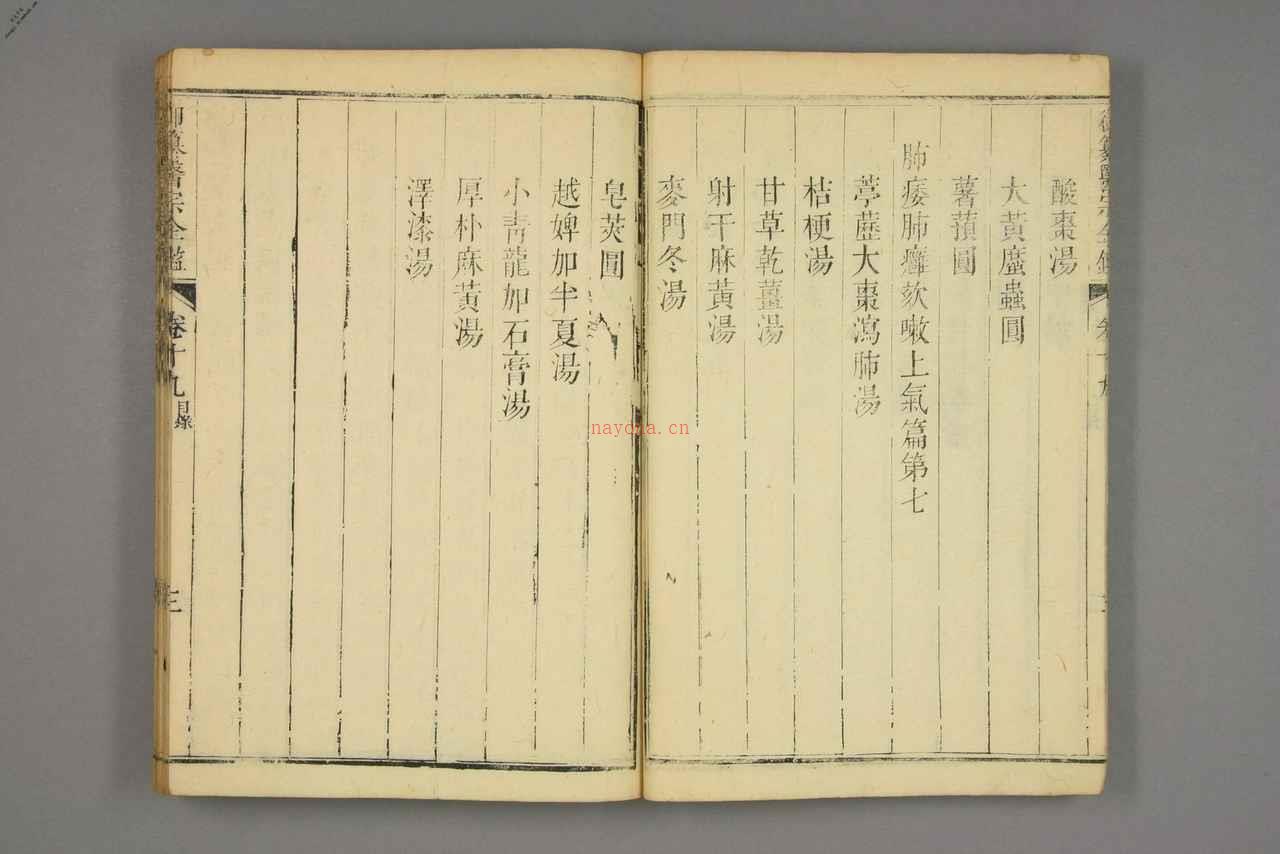 酸棗湯
大黃䗪蟲圓
薯蕷圓
肺痿肺癰欬嗽上氣篇第七
葶藶大棗瀉肺湯
桔梗湯
甘草乾薑湯
射干麻黃湯
麥門冬湯
皂莢圓
越婢加半夏湯
小青龍加石膏湯
厚朴麻黃湯
澤漆湯
御纂醫宗全鑑
卷十九
目錄
三
nayona.cn